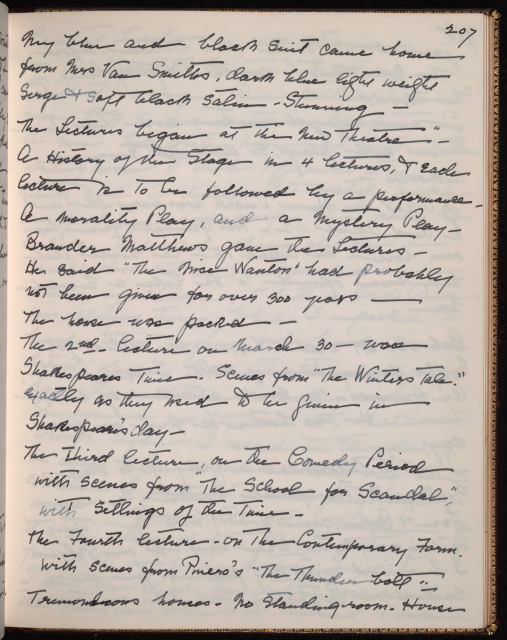 207
My blue and black suit came home
from Mrs Van Smiths, dark blue light weight
Serge & soft black Satin - Stunning -
The Lectures began at the New Theatre" -
A History of the Stage in 4 lectures, & Each
lecture is to be followed by a performance -
A morality Play, and a Mystery Play -
Brander Matthews gave the Lectures -
He said "The Nice Wanton" had probably
not been given for over 300 years —
The house was packed —
The 2nd. lecture on March 30 - was
Shakespeares Time. Scenes from "The Winters Tale."
exactly as they used to be given in
Shakespeare's day -
The third lecture, on the Comedy Period
with scenes from The School for Scandal",
with Settings of the Time -
The Fourth lecture - on The Contemporary Form.
with scenes from Pinero's "The Thunder bolt"
Tremendous houses - No Standing-room - House